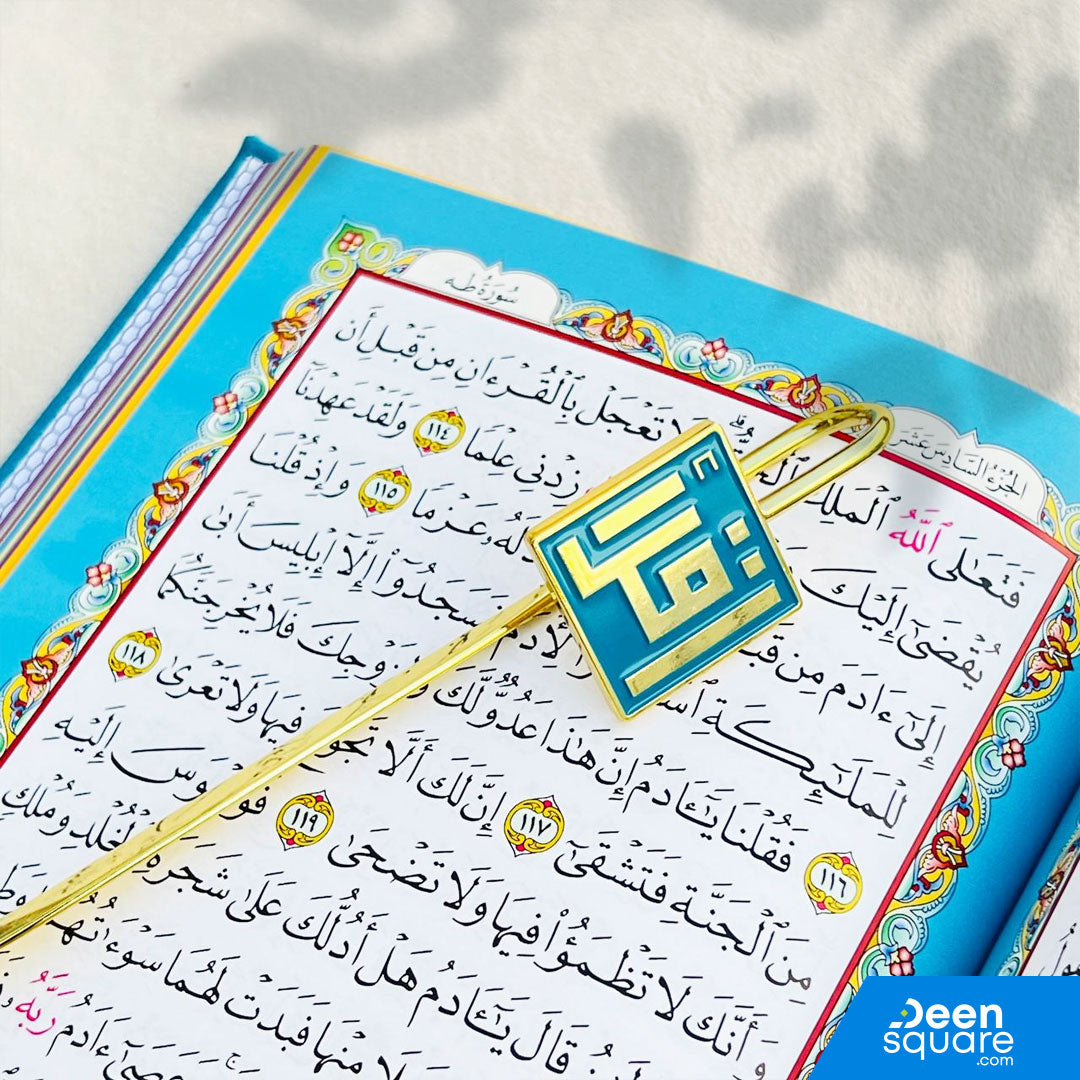 الجُزْءُ السَّادِسَ عَشَرَ
سُورَةُ طه
فَتَعَٰلَى ٱللَّهُ ٱلْمَلِكُ لَا تَعْجَلْ بِٱلْقُرْءَانِ مِن قَبْلِ أَن
يُقْضَىٰٓ إِلَيْكَ زِدْنِي عِلْمًا ١١٤ وَلَقَدْ عَهِدْنَآ
إِلَىٰٓ ءَادَمَ مِن لَهُۥ عَزْمًا ١١٥ وَإِذْ قُلْنَا
لِلْمَلَٰٓئِكَةِ لِأٓدَمَ فَسَجَدُوٓا۟ إِلَّآ إِبْلِيسَ أَبَىٰ
١١٦ فَقُلْنَا يَٰٓـَٔادَمُ إِنَّ هَٰذَا عَدُوٌّ لَّكَ وَلِزَوْجِكَ فَلَا يُخْرِجَنَّكُمَا
مِنَ ٱلْجَنَّةِ فَتَشْقَىٰٓ ١١٧ إِنَّ لَكَ أَلَّا تَجُوعَ فِيهَا وَلَا تَعْرَىٰ ١١٨
وَأَنَّكَ لَا تَظْمَؤُا۟ فِيهَا وَلَا تَضْحَىٰ ١١٩ فَوَسْوَسَ إِلَيْهِ
قَالَ يَٰٓـَٔادَمُ هَلْ أَدُلُّكَ عَلَىٰ شَجَرَةِ ٱلْخُلْدِ وَمُلْكٍ
مِنْهَا فَبَدَتْ لَهُمَا سَوْءَٰتُهُمَا
وَعَصَىٰٓ ءَادَمُ رَبَّهُۥ
Deen
square
.com